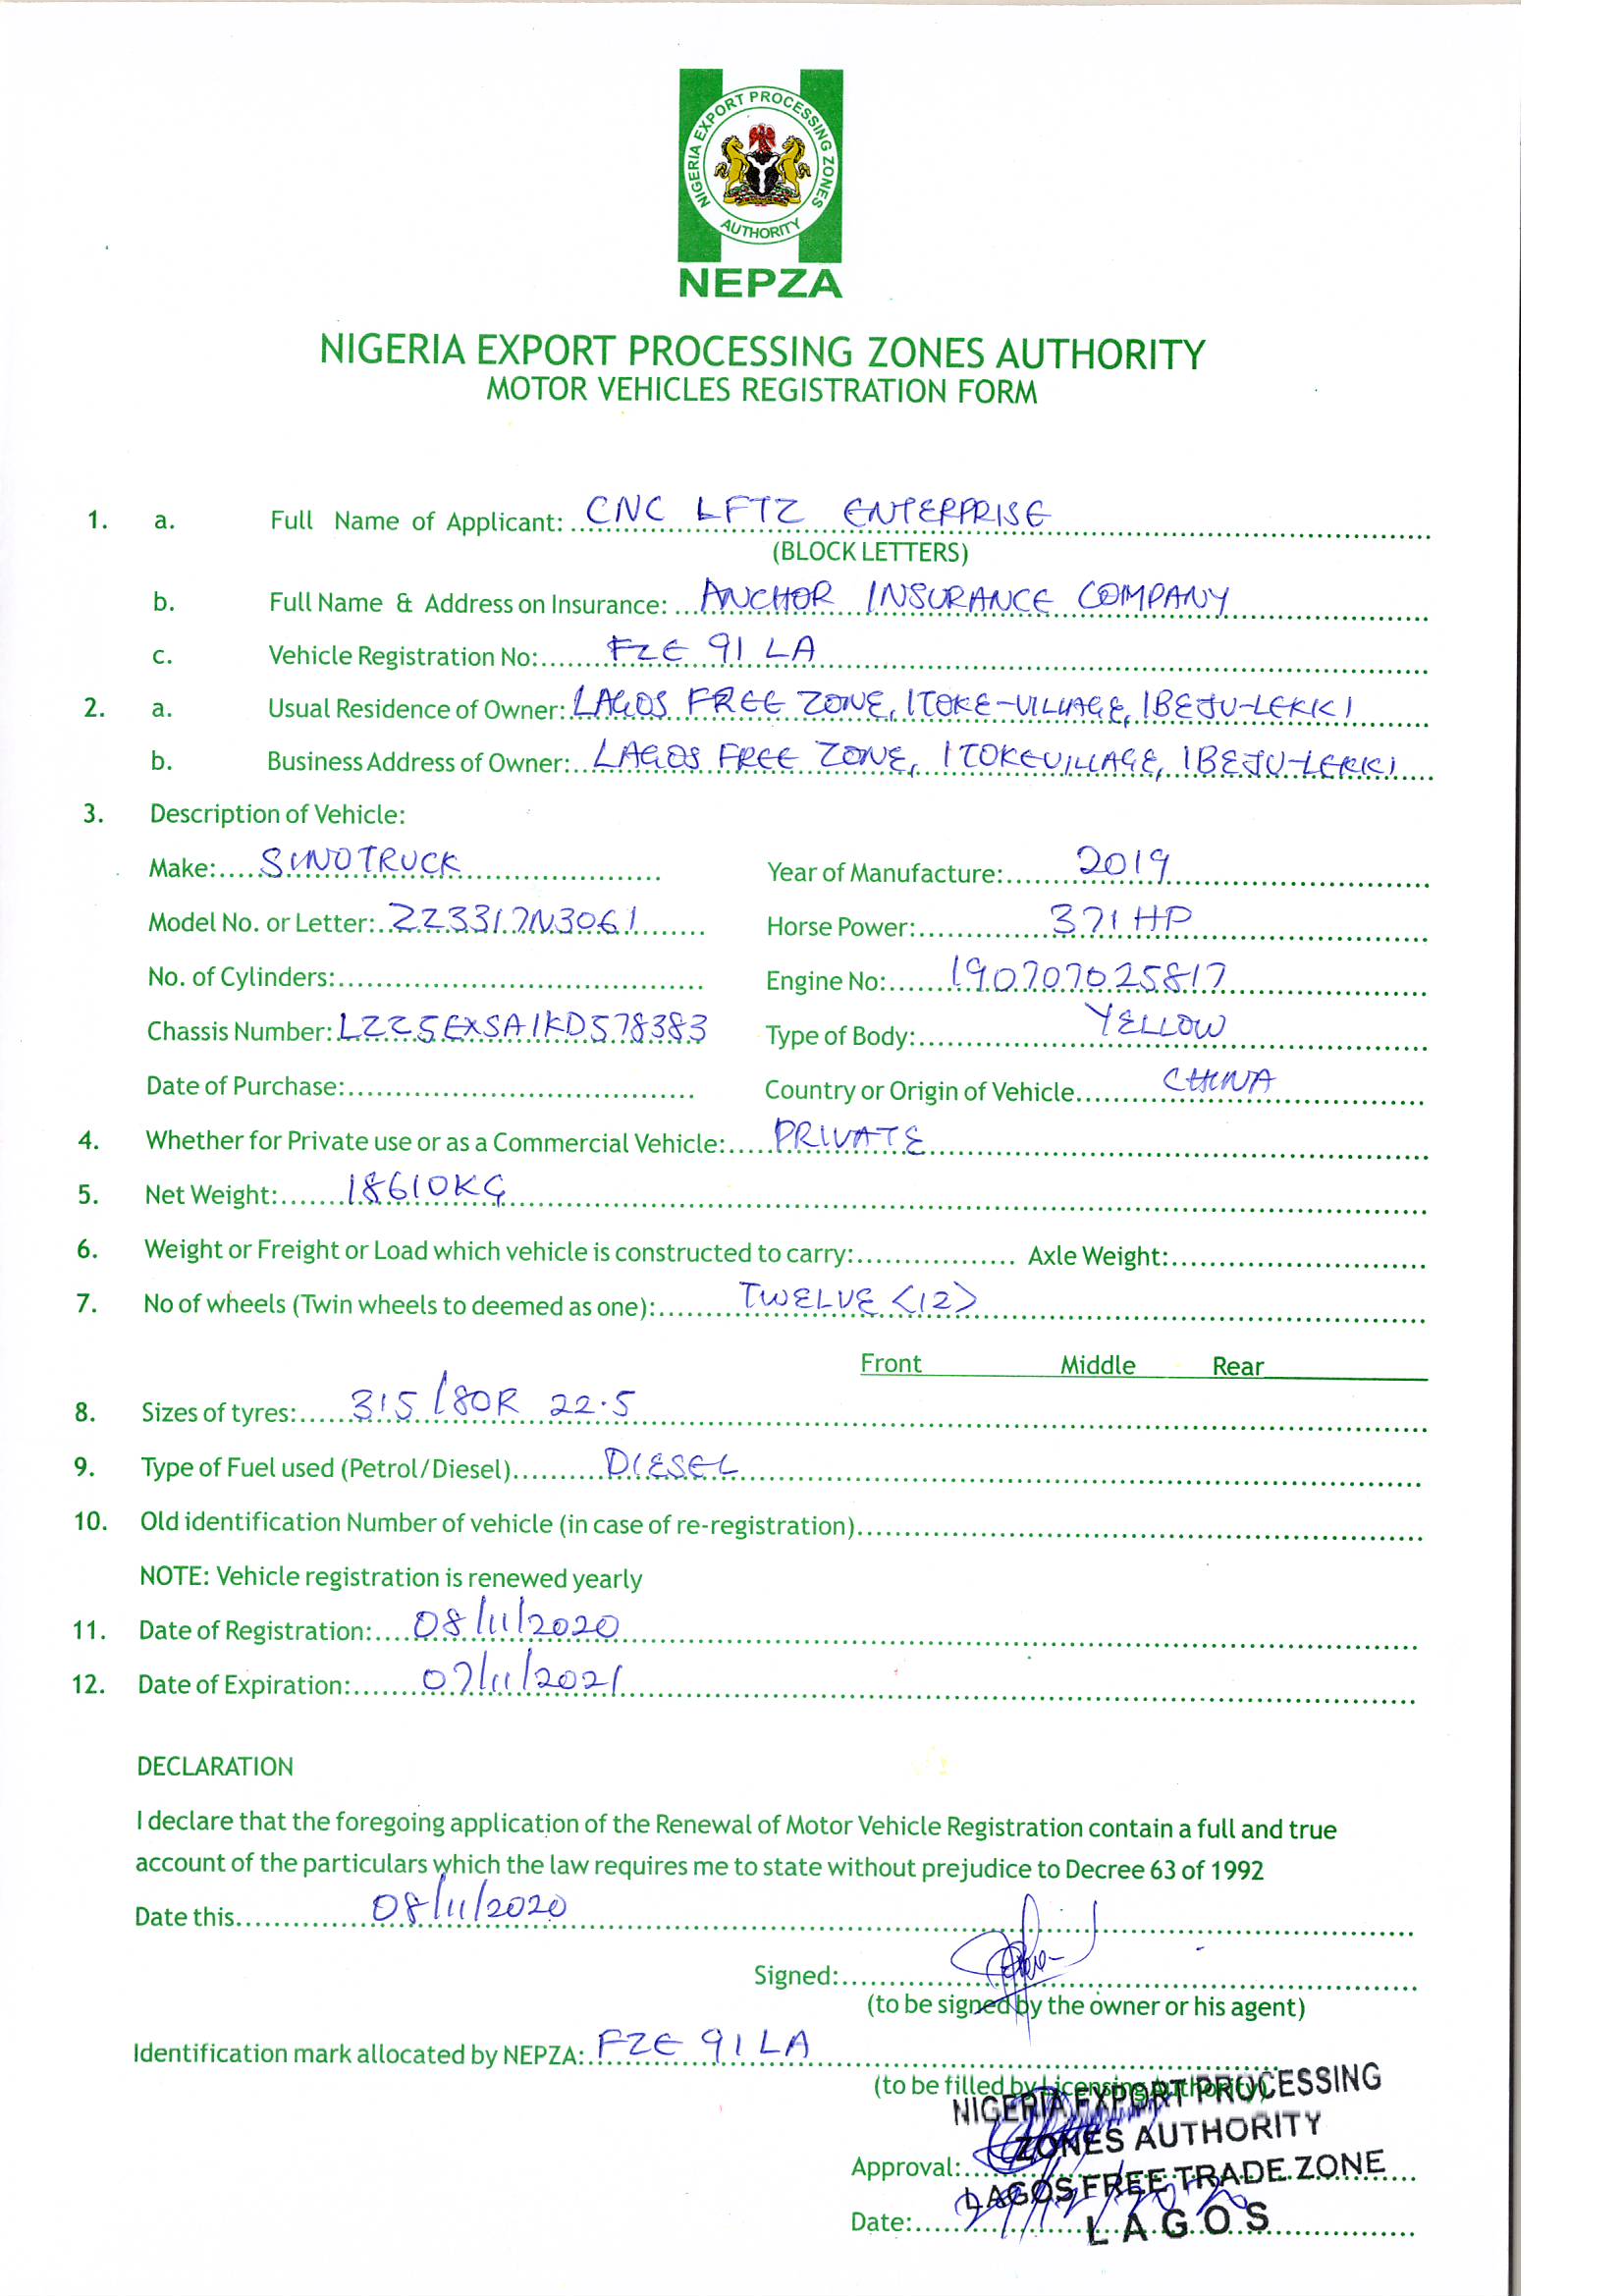 NIGERIA EXPORT PROCESSING ZONES
AUTHORITY
NEPZA
NIGERIA EXPORT PROCESSING ZONES AUTHORITY
MOTOR VEHICLES REGISTRATION FORM
1. a. Full Name of Applicant: CNC LFTZ ENTERPRISE
(BLOCK LETTERS)
b. Full Name & Address on Insurance: ANCHOR INSURANCE COMPANY
c. Vehicle Registration No: FZE 91 LA
2. a. Usual Residence of Owner: LAGOS FREE ZONE, ITOKE-VILLAGE, IBEJU-LEKKI
b. Business Address of Owner: LAGOS FREE ZONE, ITOKE VILLAGE, IBEJU-LEKKI
3. Description of Vehicle:
Make: SINOTRUCK Year of Manufacture: 2019
Model No. or Letter: ZZ3317N3061 Horse Power: 371 HP
No. of Cylinders: Engine No: 190707025817
Chassis Number: LZZ5EXSA1KD578383 Type of Body: YELLOW
Date of Purchase: Country or Origin of Vehicle CHINA
4. Whether for Private use or as a Commercial Vehicle: PRIVATE
5. Net Weight: 18610KG
6. Weight or Freight or Load which vehicle is constructed to carry: Axle Weight:
7. No of wheels (Twin wheels to deemed as one): TWELVE <12>
Front Middle Rear
8. Sizes of tyres: 315/80R 22.5
9. Type of Fuel used (Petrol/Diesel) DIESEL
10. Old identification Number of vehicle (in case of re-registration)
NOTE: Vehicle registration is renewed yearly
11. Date of Registration: 08/11/2020
12. Date of Expiration: 07/11/2021
DECLARATION
I declare that the foregoing application of the Renewal of Motor Vehicle Registration contain a full and true
account of the particulars which the law requires me to state without prejudice to Decree 63 of 1992
Date this 08/11/2020
Signed:
(to be signed by the owner or his agent)
Identification mark allocated by NEPZA: FZE 91 LA
(to be filled by Licensing Authority)
NIGERIA EXPORT PROCESSING
ZONES AUTHORITY
Approval:
LAGOS FREE TRADE ZONE
Date:
LAGOS